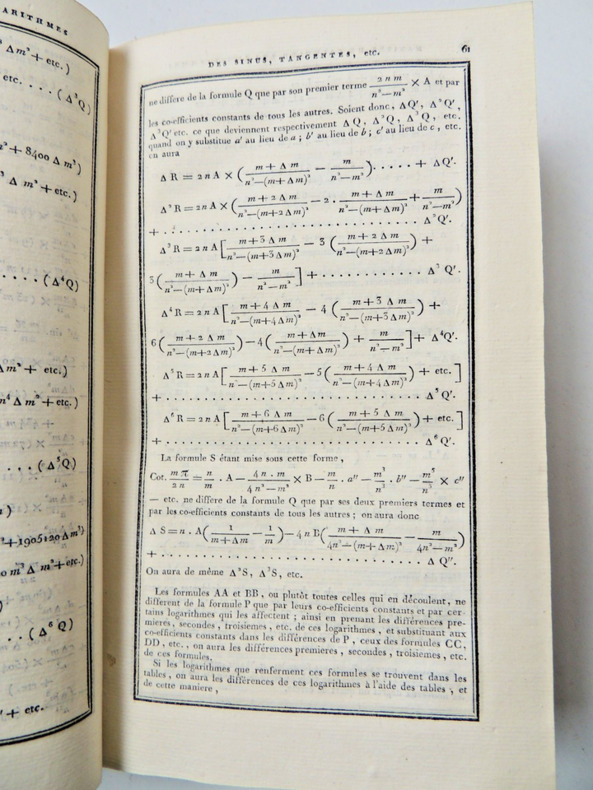 ARITHMES
Δ m² + etc.)
etc. . . . . (Δ³Q)
+ 8400 Δ m³)
Δ m⁴ + etc.)
. . . . (Δ⁴Q)
Δ m⁴ + etc.)
. . . (Δ⁵Q)
+ 1905120 Δ m³)
Δ m⁴ + etc.)
. . . (Δ⁶ Q)
+ etc.
DES SINUS, TANGENTES, etc. 61
ne differe de la formule Q que par son premier terme 2nm / n²—m² × A et par
les co-efficients constants de tous les autres. Soient donc, ΔQ', Δ²Q',
Δ³Q' etc. ce que deviennent respectivement ΔQ, Δ²Q, Δ³Q, etc.
quand on y substitue a' au lieu de a; b' au lieu de b; c' au lieu de c, etc.
on aura
Δ R = 2 n A × ( m + Δ m / n²—(m+Δm)² — m / n²—m² ) . . . . . + ΔQ'.
Δ²R = 2 n A × ( m + 2 Δ m / n²—(m+2Δm)² — 2 . m + Δ m / n²—(m+Δm)² + m / n²—m² )
+ . . . . . . . . . . . . . . . . . . . . Δ²Q'.
Δ³R = 2 n A [ m + 3 Δ m / n²—(m+3Δm)² — 3 ( m + 2 Δ m / n²—(m+2Δm)² ) +
3 ( m + Δ m / n²—(m+Δm)² ) — m / n²—m² ] + . . . . . . . . . . Δ³ Q'.
Δ⁴R = 2 n A [ m + 4 Δ m / n²—(m+4Δm)² — 4 ( m + 3 Δ m / n²—(m+3Δm)² ) +
6 ( m + 2 Δ m / n²—(m+2Δm)² ) — 4 ( m + Δ m / n²—(m+Δm)² ) + m / n²—m² ] + Δ⁴Q'.
Δ⁵R = 2 n A [ m + 5 Δ m / n²—(m+5Δm)² — 5 ( m + 4 Δ m / n²—(m+4Δm)² ) + etc. ]
+ . . . . . . . . . . . . . . . . . . . . Δ⁵Q'.
Δ⁶R = 2 n A [ m + 6 Δ m / n²—(m+6Δm)² — 6 ( m + 5 Δ m / n²—(m+5Δm)² ) + etc. ]
+ . . . . . . . . . . . . . . . . . . . . Δ⁶Q'.
La formule S étant mise sous cette forme,
Cot. m π / 2n = n / m . A — 4 n . m / 4 n²—m² × B — m / n . a'' — m³ / n³ . b'' — m⁵ / n⁵ × c''
— etc. ne differe de la formule Q que par ses deux premiers termes et
par les co-efficients constants de tous les autres; on aura donc
Δ S = n . A ( 1 / m+Δm — 1 / m ) — 4 n B ( m + Δ m / 4n²—(m+Δm)² — m / 4n²—m² )
+ . . . . . . . . . . . . . . . . . . . . Δ Q''.
On aura de même Δ²S, Δ³S, etc.
Les formules AA et BB, ou plutôt toutes celles qui en découlent, ne
different de la formule P que par leurs co-efficients constants et par cer-
tains logarithmes qui les affectent; ainsi en prenant les différences pre-
mieres, secondes, troisiemes, etc. de ces logarithmes, et substituant aux
co-efficients constants dans les différences de P, ceux des formules CC,
DD, etc., on aura les différences premieres, secondes, troisiemes, etc.
de ces formules.
Si les logarithmes que renferment ces formules se trouvent dans les
tables, on aura les différences de ces logarithmes à l'aide des tables; et
de cette maniere,